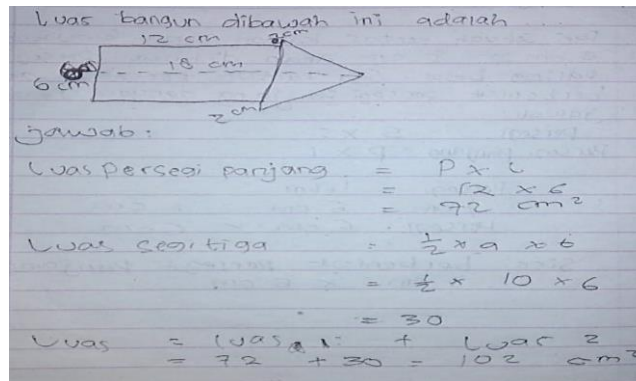 Luas bangun dibawah ini adalah
12 cm 2cm
18 cm
6 cm
2 cm
jawab:
Luas persegi panjang = P x L
= 12 x 6
= 72 cm²
Luas segitiga = ½ x a x t
= ½ x 10 x 6
= 30
Luas = luas 1 + luas 2
= 72 + 30 = 102 cm²